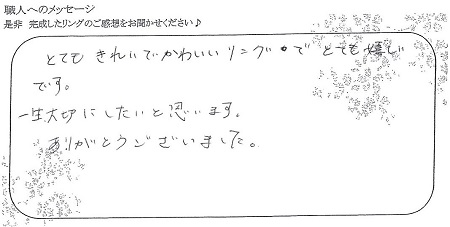 職人へのメッセージ
是非 完成したリングのご感想をお聞かせください♪
とても きれいでかわいいリングで とても嬉しい
です。
一生大切にしたいと思います。
ありがとうございました。